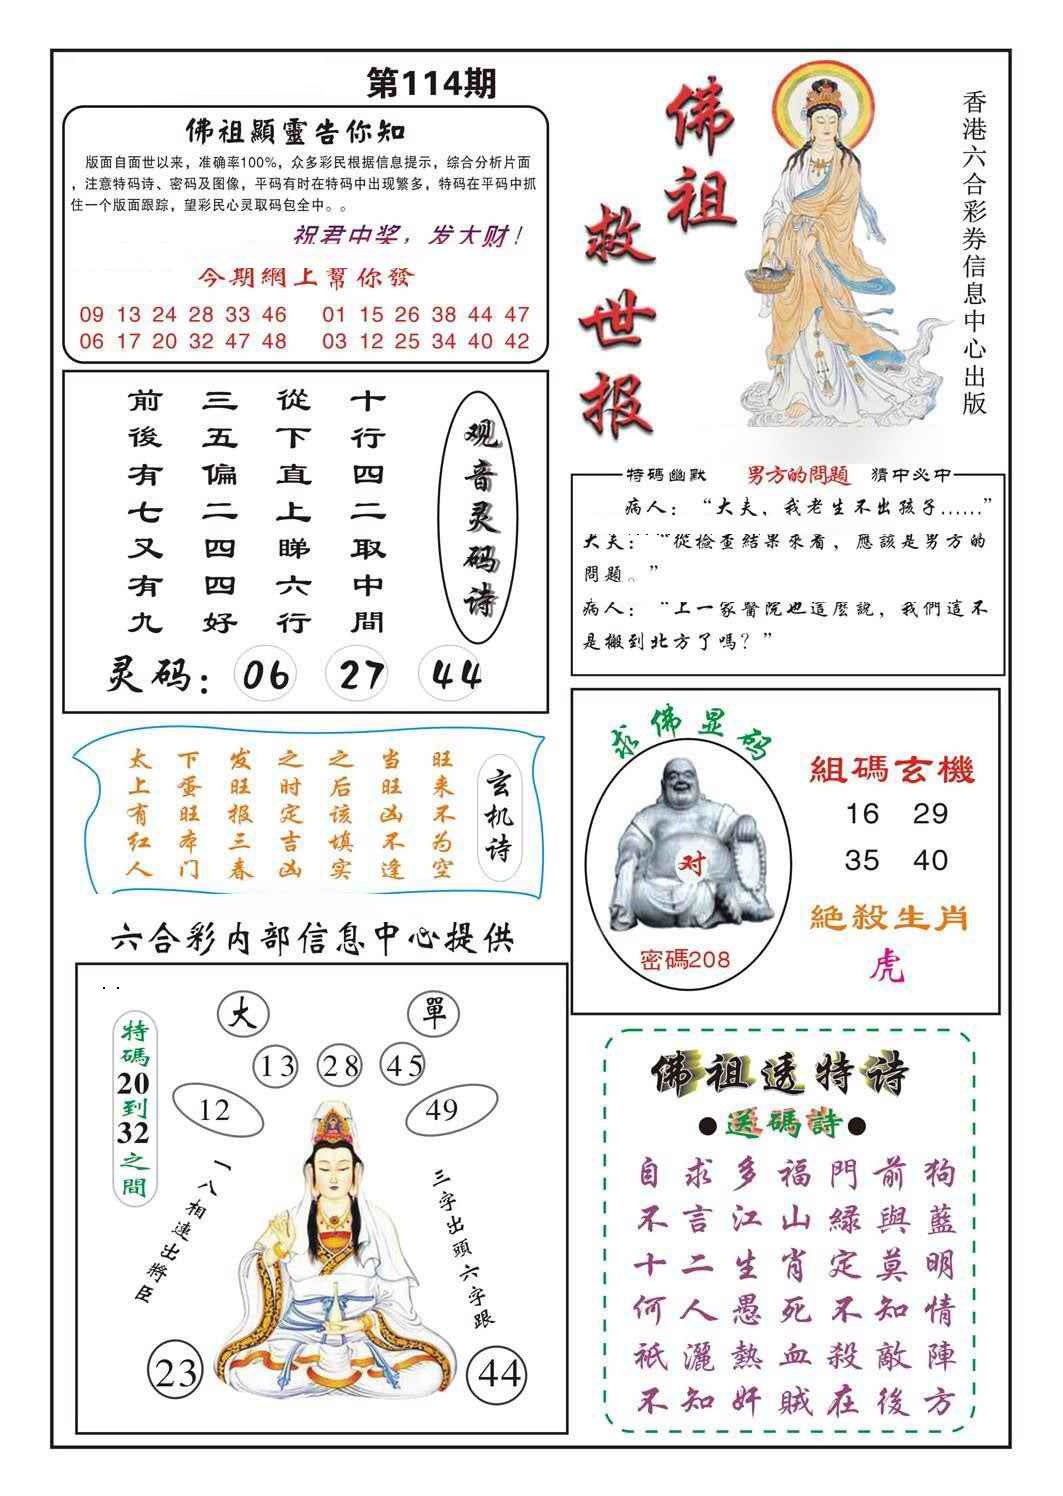 第114期
佛祖顯靈告你知
版面自面世以来，准确率100%，众多彩民根据信息提示，综合分析片面
，注意特码诗、密码及图像，平码有时在特码中出现繁多，特码在平码中抓
住一个版面跟踪，望彩民心灵取码包全中。。
祝君中奖，发大财！
今期網上幫你發
09 13 24 28 33 46 01 15 26 38 44 47
06 17 20 32 47 48 03 12 25 34 40 42
佛祖
救世报
香港六合彩券信息中心出版
观音灵码诗
十行四二取中間
從下直上睇六行
三五偏二四四好
前後有七又有九
灵码：06 27 44
特碼幽默 男方的問題 猜中必中
病人：“大夫，我老生不出孩子……”
大夫：“從檢查結果來看，應該是男方的
問題。”
病人：“上一家醫院也這麼說，我們這不
是搬到北方了嗎？”
玄机诗
旺来不为空
当旺凶不逢
之后该填实
之时定吉凶
发旺报三春
下蛋旺本门
太上有红人
求佛显码
对
密碼208
組碼玄機
16 29
35 40
絕殺生肖
虎
六合彩内部信息中心提供
特碼20到32之間
大 單
13 28 45
12 49
一八相連出將臣
三字出頭六字跟
23 44
佛祖透特诗
●送碼詩●
自求多福門前狗
不言江山綠與藍
十二生肖定莫明
何人愚死不知情
祇灑熱血殺敵陣
不知奸賊在後方